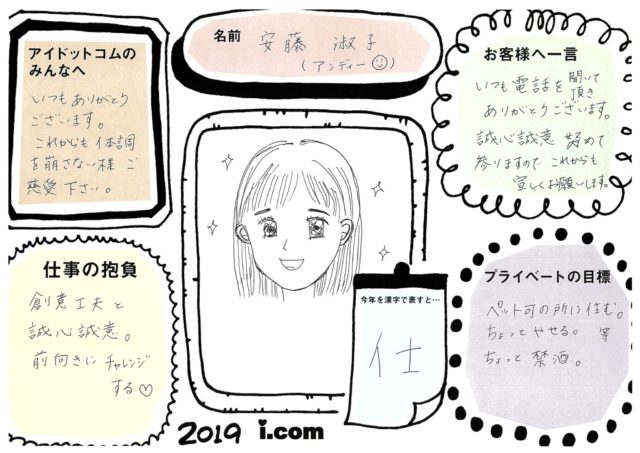 アイドットコムの
みんなへ
いつもありがとう
ございます。
これからも体調
を崩さない様ご
慈愛下さい。
名前 安藤 淑子
(アンディー☺)
お客様へ一言
いつも電話を聞いて頂き
ありがとうございます。
誠心誠意 努めて
参りますので これからも
宜しくお願いします。
仕事の抱負
創意工夫と
誠心誠意。
前向きにチャレンジ
する♡
今年を漢字で表すと…
仕
プライベートの目標
ペット可の所に住む。
ちょっとやせる。 等
ちょっと禁酒。
2019 i.com